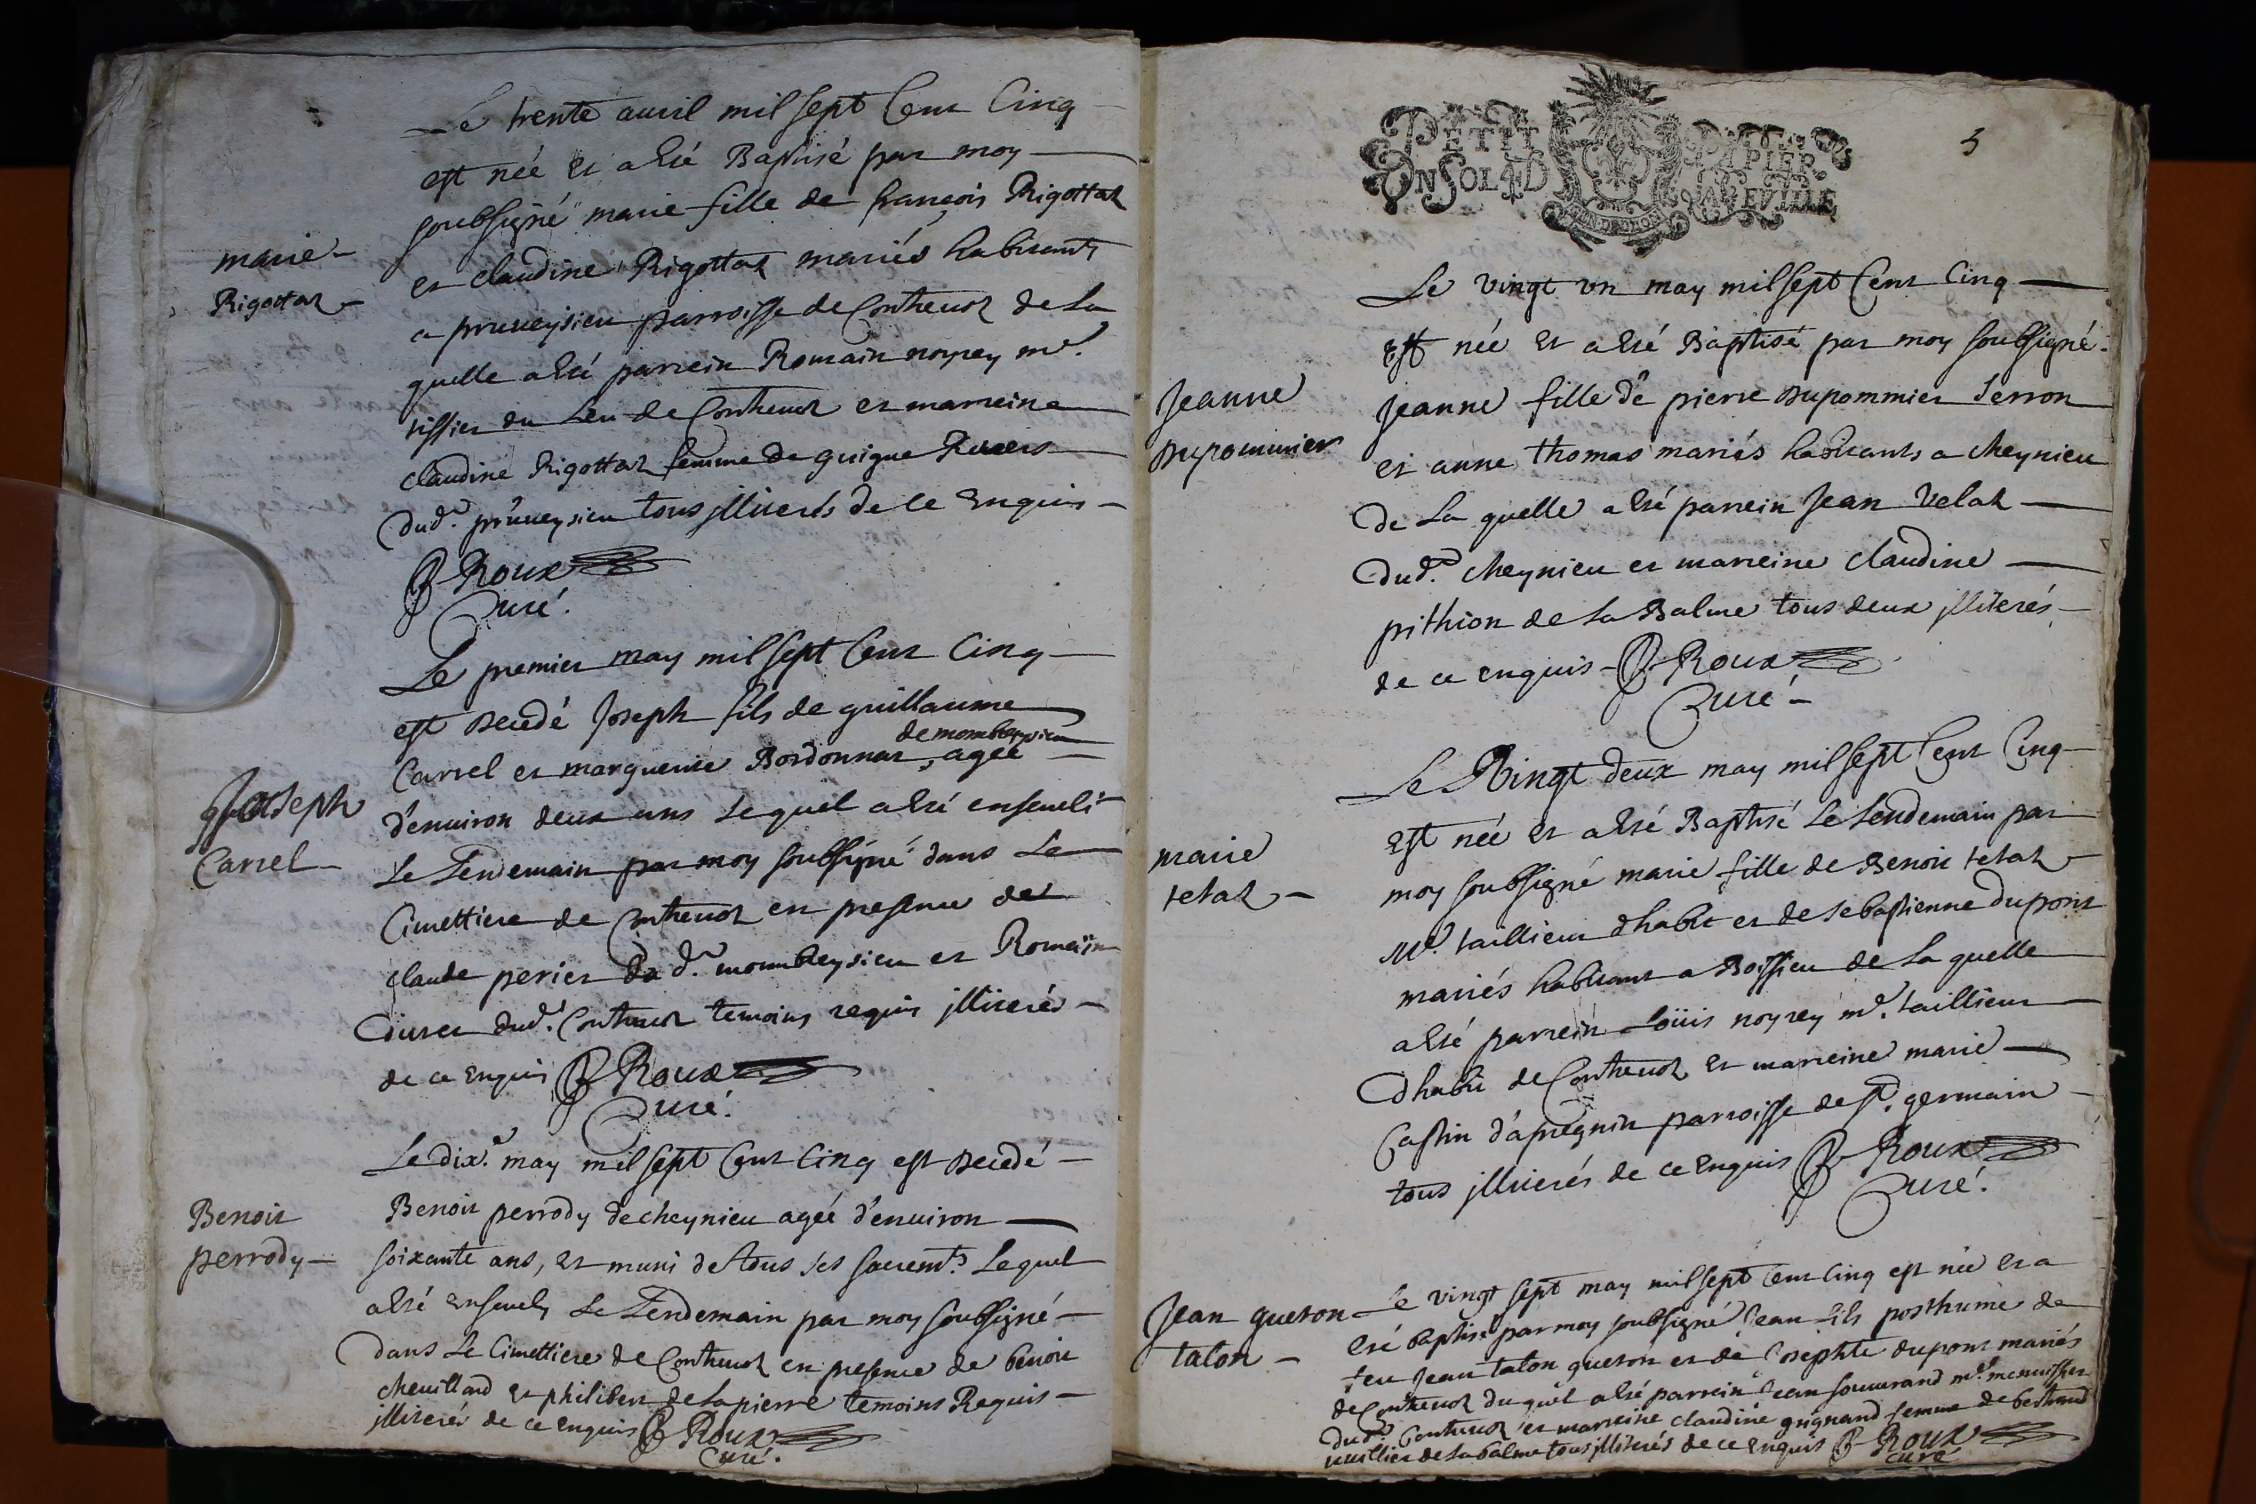 Le trente auril mil sept Cent Cinq
est née et a esté Baptisé par moy
soubsigné marie fille de françois Rigottat
marie
Rigottat
et claudine Rigottat mariés habitants
a pruueysieu parroisse de Contheuoz de La
quelle a esté parrein Romain noyrey me.
tissier du Lieu de Contheuoz et marreine
claudine Rigottat femme de guigue
dud. prûueysieu tous jlliterés de ce Enquis
B Roux
Curé.
Le premier may mil sept Cent Cinq
est decedé Joseph fils de guillaume
de mombleysieu
Carrel et marguerite Bordonnat, agéé
Joseph
Carrel
d'enuiron deux ans Lequel a esté enseueli
Le Lendemain par moy soubsigné dans Le
Cimettiere de Contheuoz en presence de
claude perier du d. mombleysieu et Romain
Curer dud. Contheuoz temoins requis jlliterés
de ce Enquis B Roux
Curé.
Le dixe. may mil sept Cent Cinq est decedé
Benoit
perrody
Benoit perrody de cheynieu agéé d'enuiron
soixante ans, et muni de tous ses sacremts. Lequel
a esté Enseuely Le Lendemain par moy soubsigné
dans Le Cimettiere de Contheuoz en presence de benoit
cheuillard et philibert de Lapierre temoins Requis
jlliterés de ce enquis B Roux
Curé.
PETIT PAPIER
UN SOL 4 D LA FEVILLE
GEN. DE DIION
5
Le vingt vn may mil sept Cent Cinq
Est née et a esté Baptisé par moy soubsigné
Jeanne
Dupommier
Jeanne fille de pierre dupommier Serron
et anne thomas mariés habitants a cheynieu
de La quelle a esté parrein Jean Velat
dud. cheynieu et marreine claudine
pithion de La Balme tous deux jlliterés
de ce enquis B Roux
Curé
Le Vingt deux may mil sept Cent Cinq
Est née et a esté Baptisé Le Lendemain par
marie
tetaz
moy soubsigné marie fille de Benoit tetaz
Me. taillieur dhabit et de sebastienne dupont
mariés habitant a Boissieu de La quelle
a esté parrein Loüis noyrey me. taillieur
dhabit de Contheuoz et marreine marie
Castin d'apregnin parroisse de st. germain
tous jlliterés de ce Enquis B Roux
Curé.
Jean queron
taton
Le vingt sept may mil sept Cent Cinq est née et a
esté baptisé par moy soubsigné Jean fils posthume de
feu Jean taton queron et de Josephte dupont mariés
de Contheuoz duquel a esté parrein Jean souuerand me. menuissier
dud. Contheuoz et marreine claudine guignard femme de bertrand
vuillier de La balme tous jlliterés de ce Enquis B Roux
curé